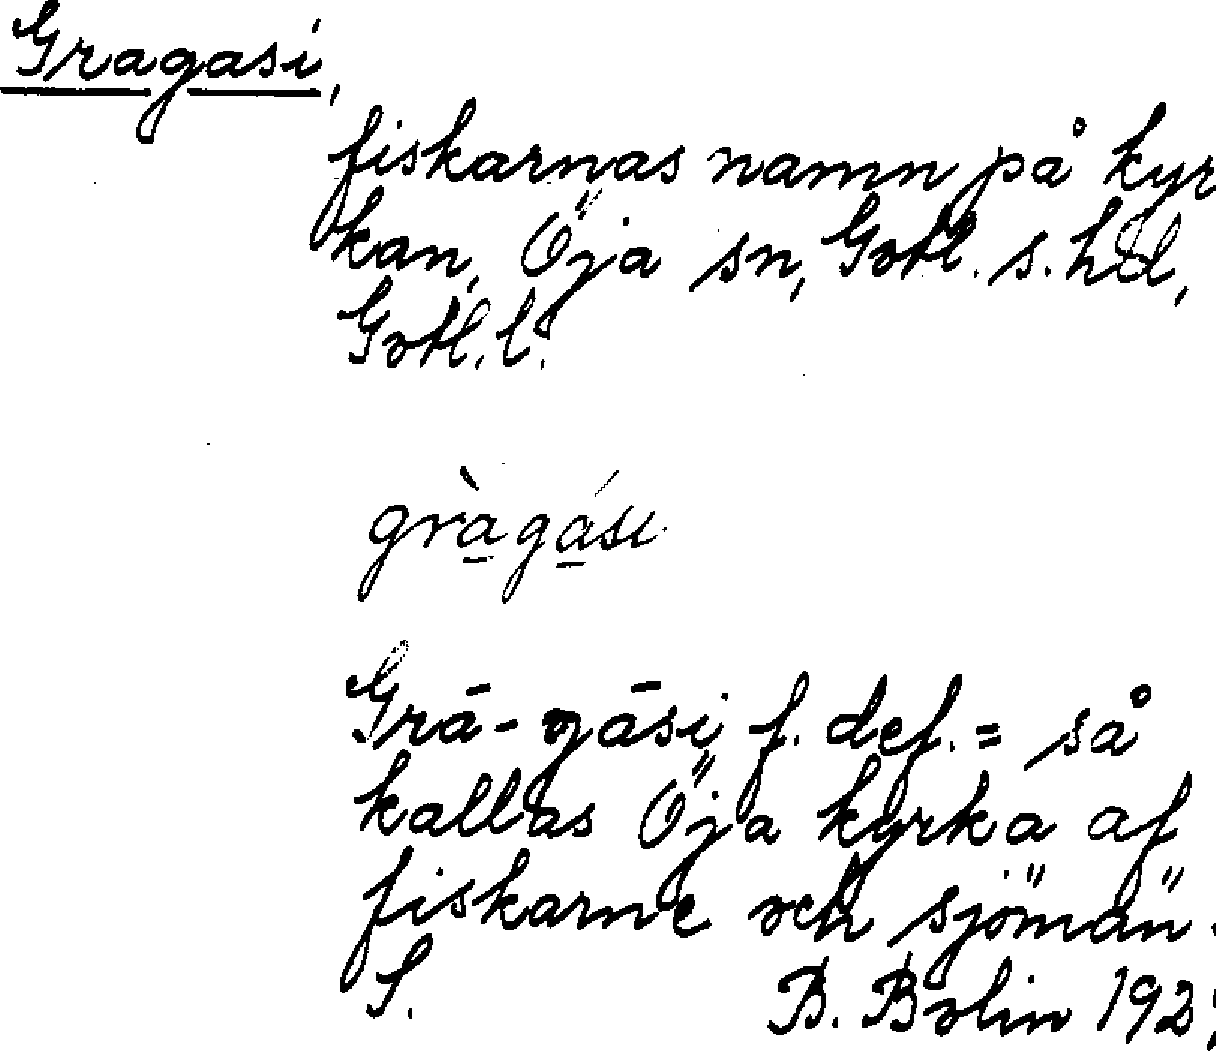 Gragasi,
fiskarnas namn på kyr
kan, Öja sn, Gotl. s. hd,
Gotl. l.
gràgási
Grā-gāsi f. def. = så
kallas Öja kyrka af
fiskarne och sjömän
S. B. Bolin 192